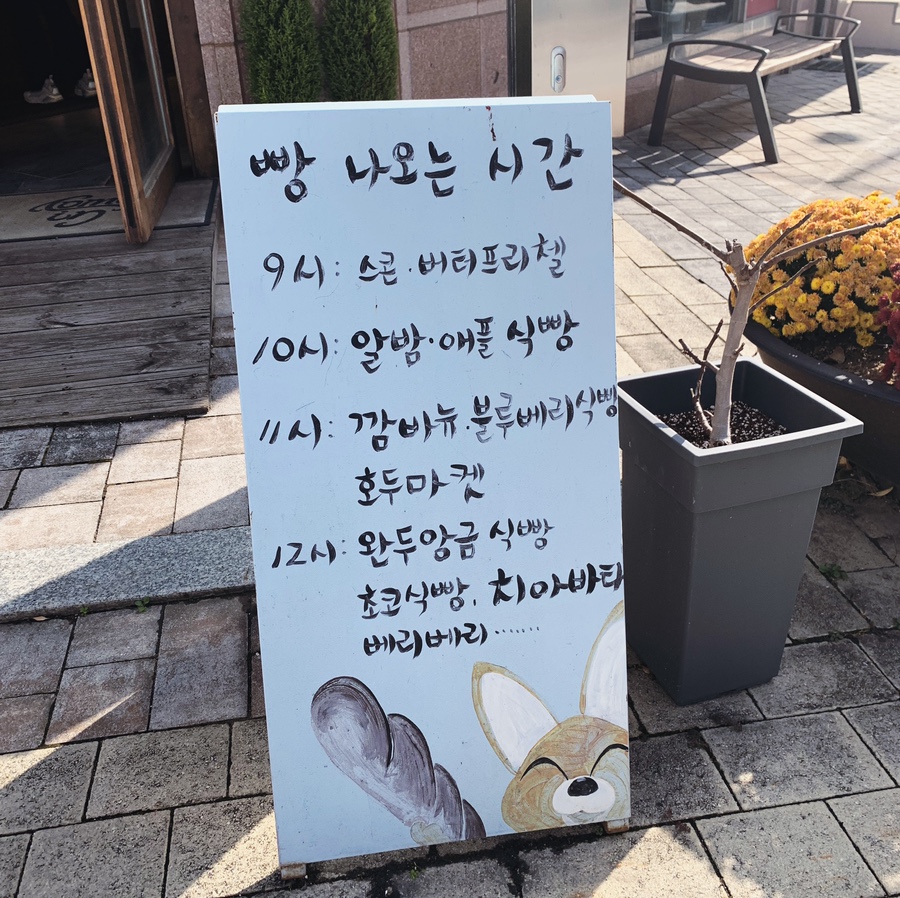 빵 나오는 시간
9시: 스콘·버터프리첼
10시: 알밤·애플 식빵
11시: 깜바뉴·블루베리식빵
호두마켓
12시: 완두앙금 식빵
초코식빵, 치아바타
베리베리·······